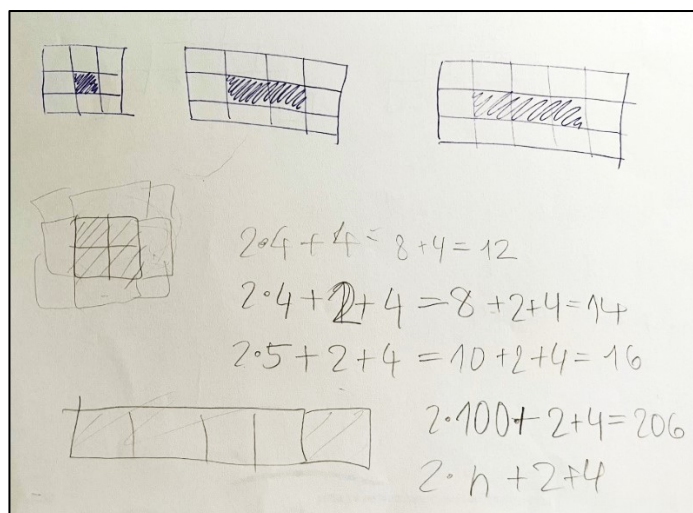 2·4+4=8+4=12
2·4+2+4=8+2+4=14
2·5+2+4=10+2+4=16
2·100+2+4=206
2·n+2+4